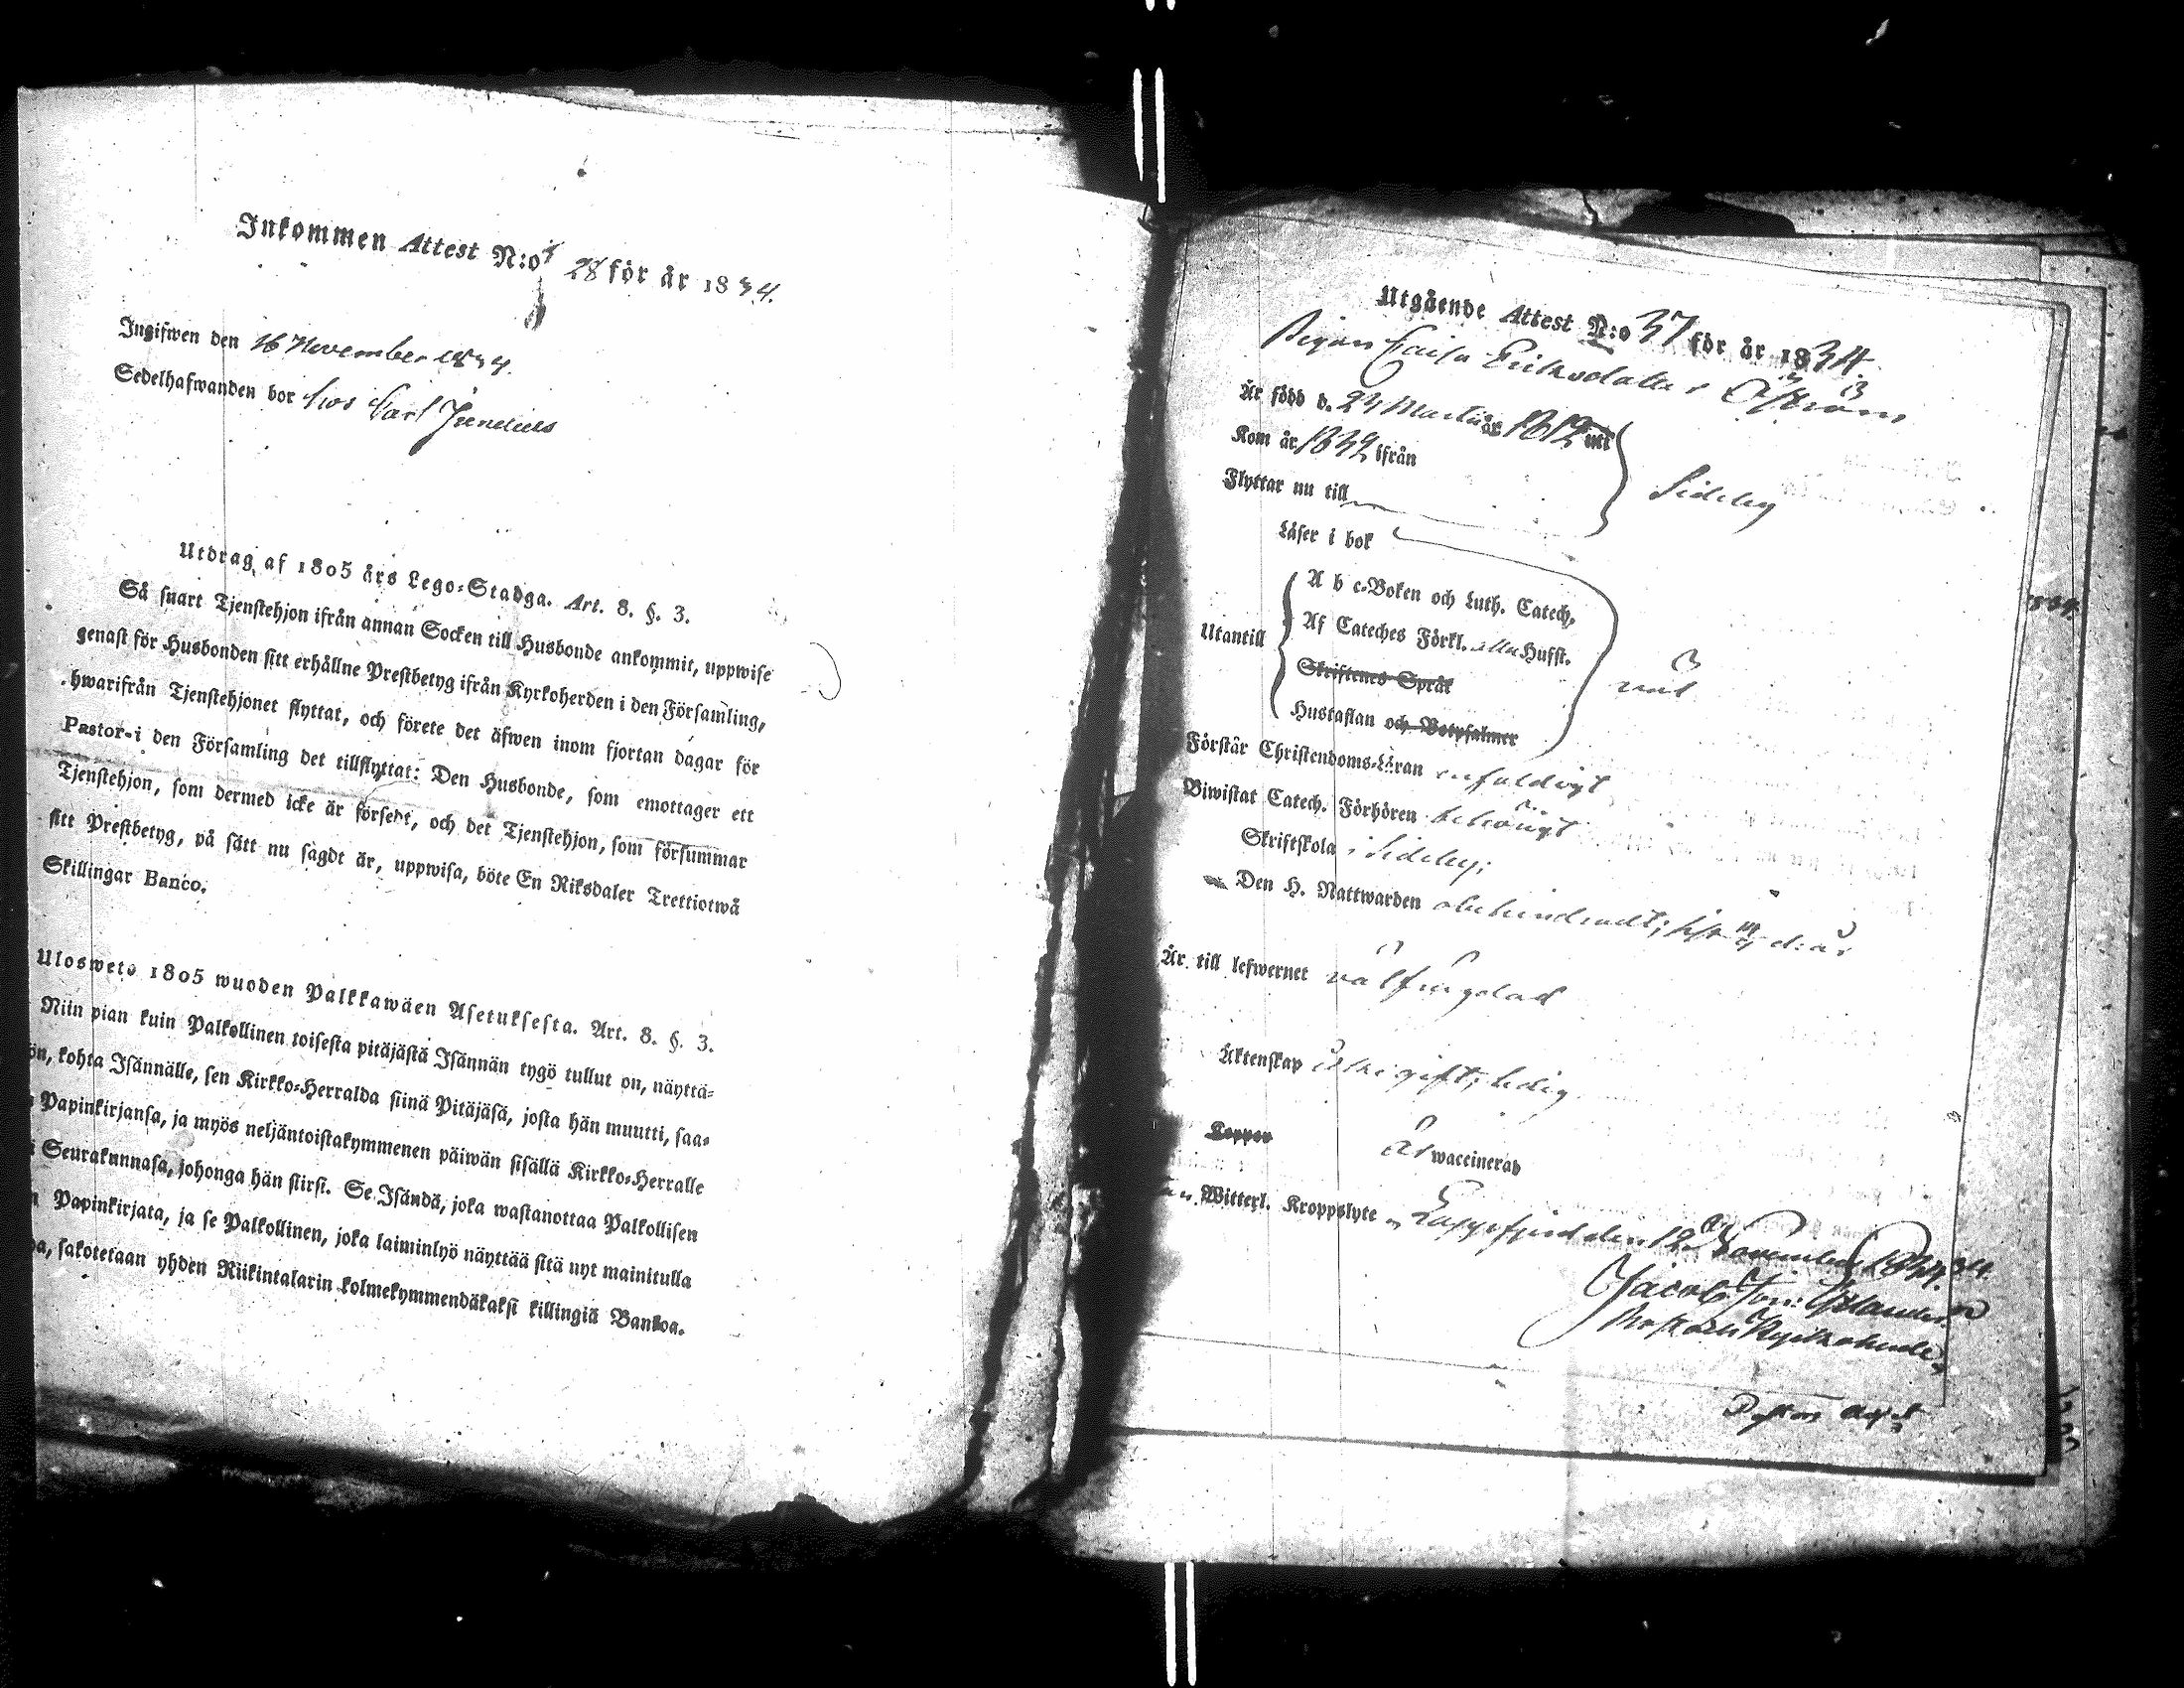 Inkommen Attest N:o 28 för år 1834.
Ingifwen den 16 November 1834.
Sedelhafwanden bor hos Carl
Utdrag af 1805 års Lego-Stadga. Art. 8. §. 3.
Så snart Tjenstehjon ifrån annan Socken till Husbonde ankommit, uppwise
genast för Husbonden sitt erhållne Prestbetyg ifrån Kyrkoherden i den Församling,
hwarifrån Tjenstehjonet flyttat, och förete det äfwen inom fjortan dagar för
Pastor i den Församling det tillflyttat: Den Husbonde, som emottager ett
Tjenstehjon, som dermed icke är försedt, och det Tjenstehjon, som försummar
sitt Prestbetyg, på sätt nu sagdt är, uppwisa, böte En Riksdaler Trettiotwå
Skillingar Banco.
Ulosweto 1805 wuoden Palkkawäen Asetuksesta. Art. 8. §. 3.
Niin pian kuin Palkollinen toisesta pitäjästä Isännän tygö tullut on, näyttä-
ön, kohta Isännälle, sen Kirkko-Herralda siinä Pitäjäsä, josta hän muutti, saa-
Papinkirjansa, ja myös neljäntoistakymmenen päiwän sisällä Kirkko-Herralle
Seurakunnasa, johonga hän siirsi. Se Isändä, joka wastanottaa Palkollisen
Papinkirjata, ja se Palkollinen, joka laiminlyö näyttää sitä nyt mainitulla
sakotetaan yhden Riikintalarin kolmekymmendäkaksi killingiä Bankoa.
Utgående Attest N:o 37 för år 1834.
Pigan Caisa Eriksdotter Öström
Är född d. 24 Martii år 1812 uti
Kom år 1832 ifrån
Sideby
Flyttar nu till
Läser i bok
A b c-Boken och Luth. Catech.
Af Cateches Förkl. alla Hufst.
Utantill
Skriftenes Språk
väl
Hustaflan och Botpsalmer
Förstår Christendoms-Läran enfaldigt
Biwistat Catech. Förhören behörigt
Skriftskola i Sideby;
Den H. Nattwarden obehindradt; sist d. å.
Är till lefwernet välfrägdad
Äktenskap ledig
Koppor är waccinerad
Witterl. Kroppslyte Lappfjerd den 12 November 1834.
Jacob
Prost och Kyrkoherde